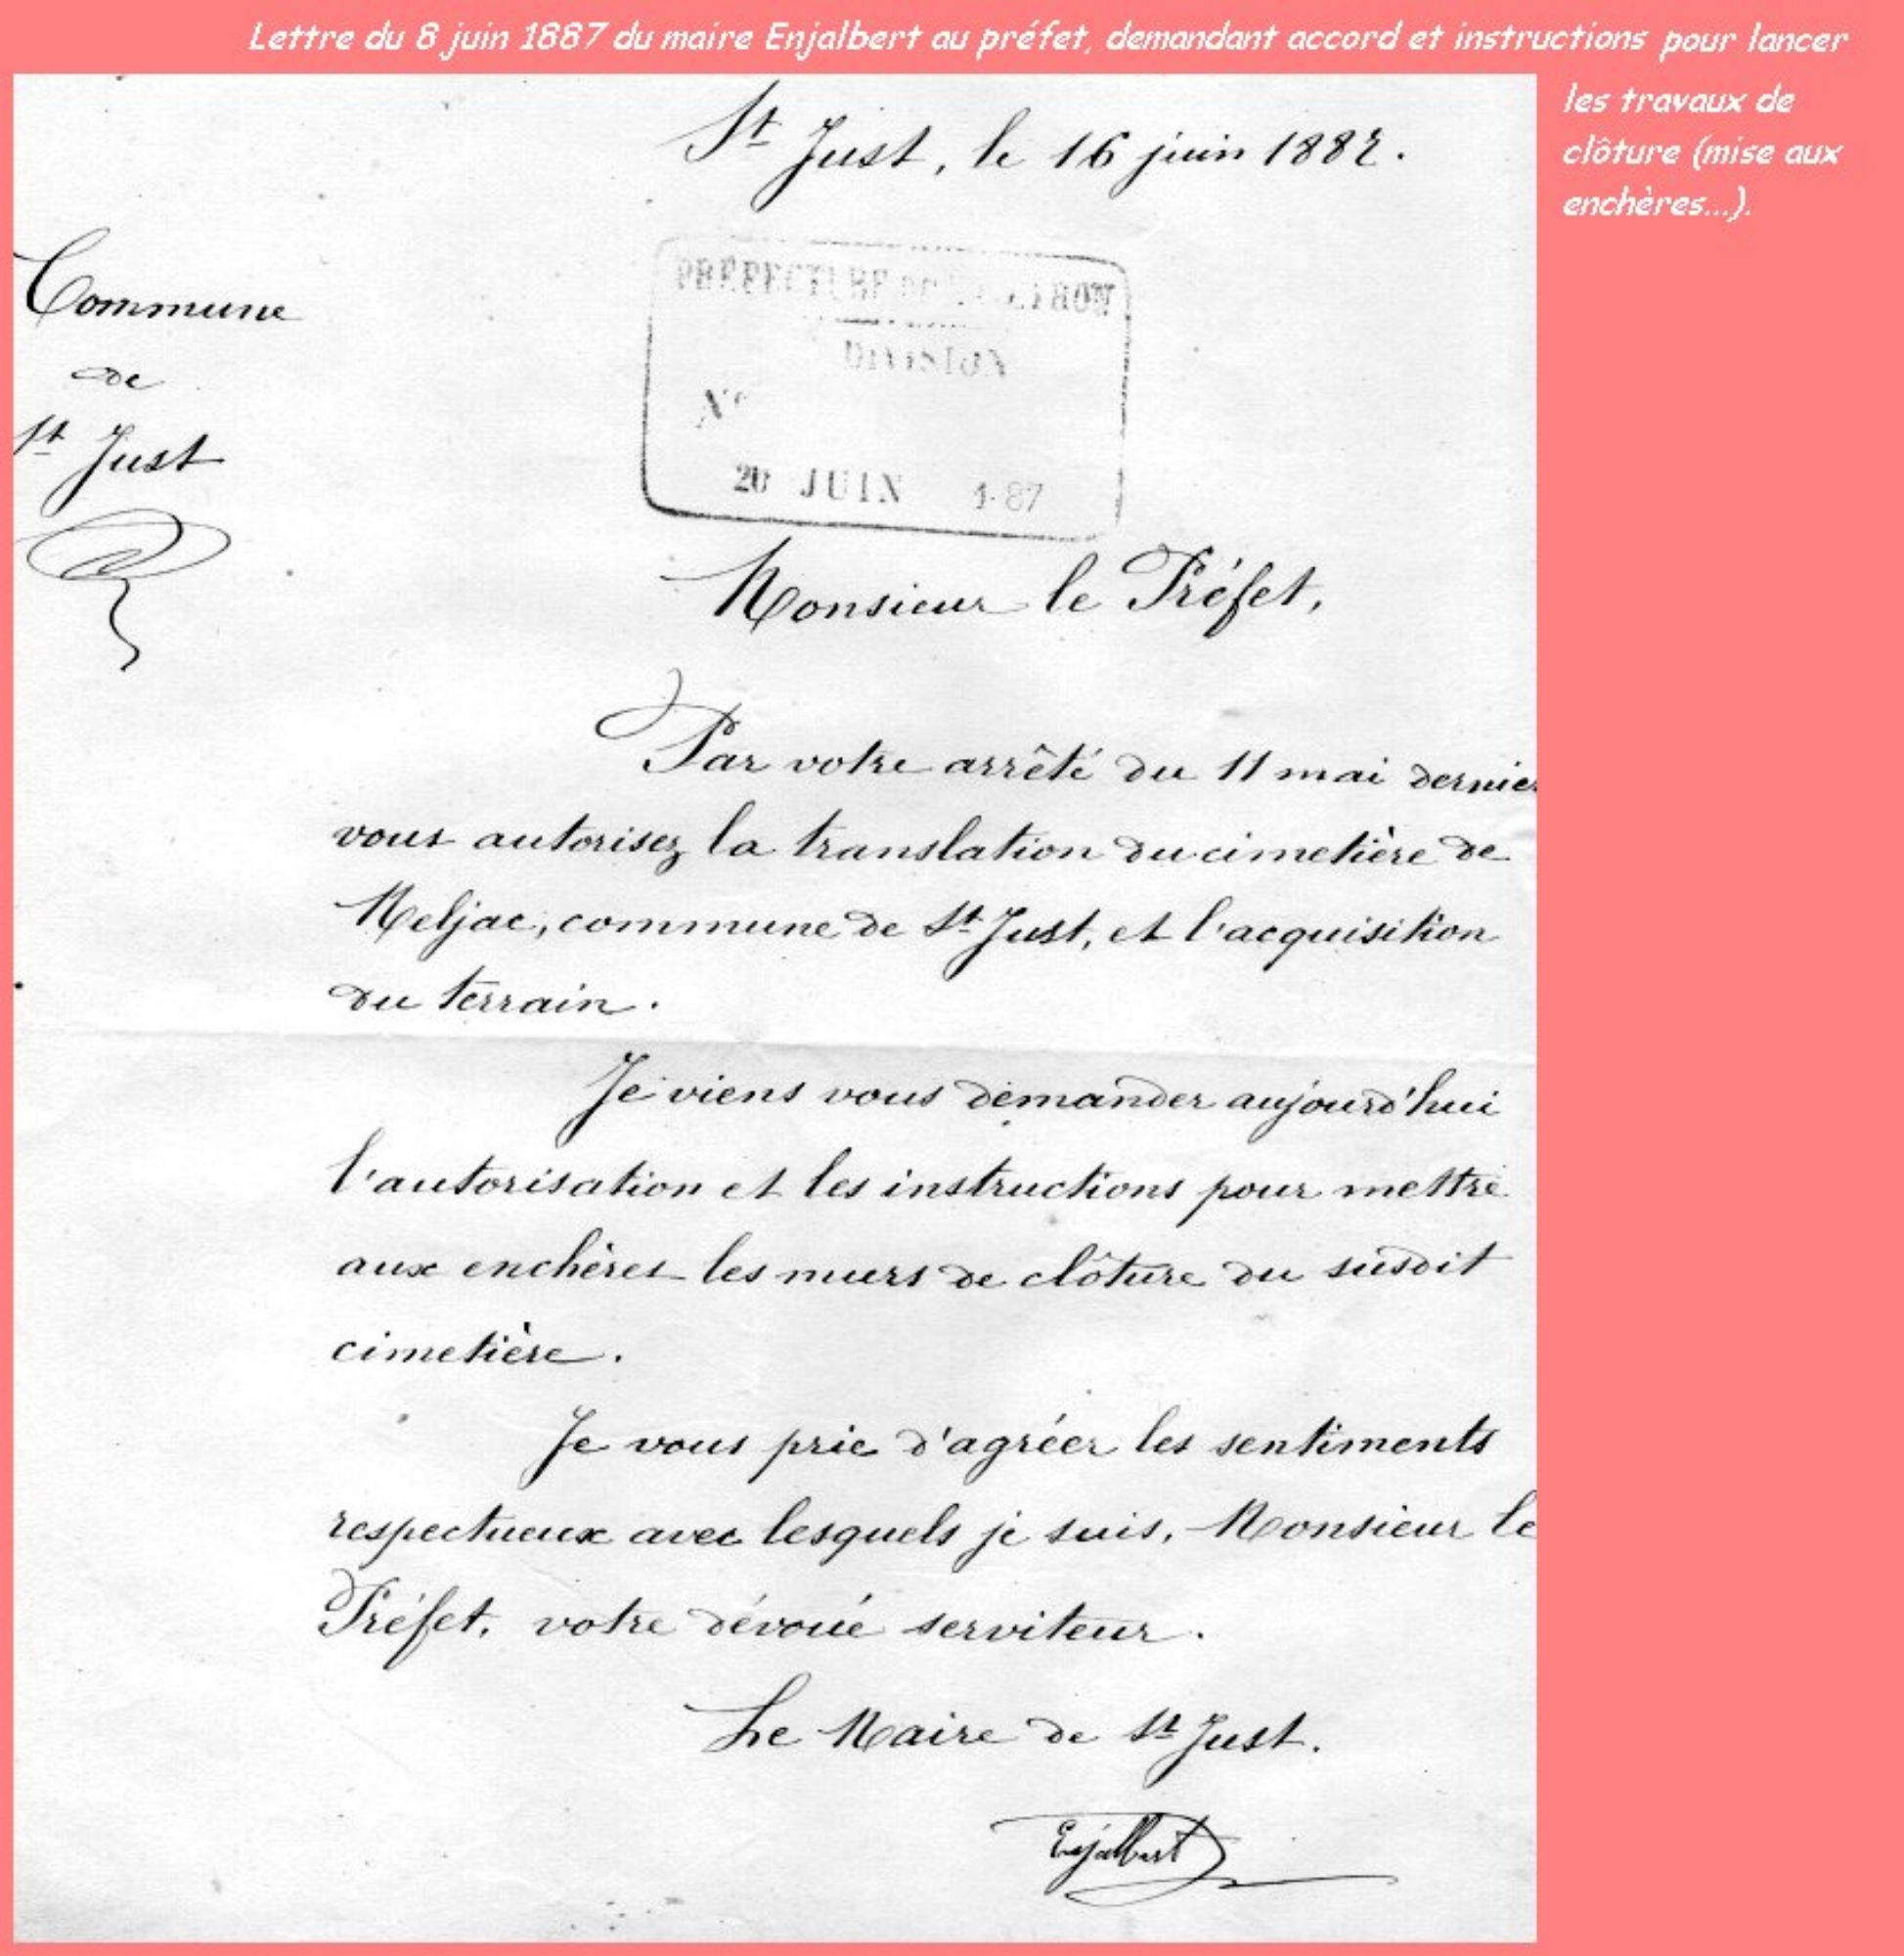 Lettre du 8 juin 1887 du maire Enjalbert au préfet, demandant accord et instructions pour lancer
les travaux de
clôture (mise aux
enchères...).
St Just, le 16 juin 1887.
Commune
de
St Just
PREFECTURE
DIVISION
No
20 JUIN 1887
Monsieur le Préfet,
Par votre arrêté du 11 mai dernier
vous autorisez la translation du cimetière de
Meljac, commune de St Just, et l'acquisition
du terrain.
Je viens vous demander aujourd'hui
l'autorisation et les instructions pour mettre
aux enchères les murs de clôture du susdit
cimetière.
Je vous prie d'agréer les sentiments
respectueux avec lesquels je suis, Monsieur le
Préfet, votre dévoué serviteur.
Le Maire de St Just.
Enjalbert